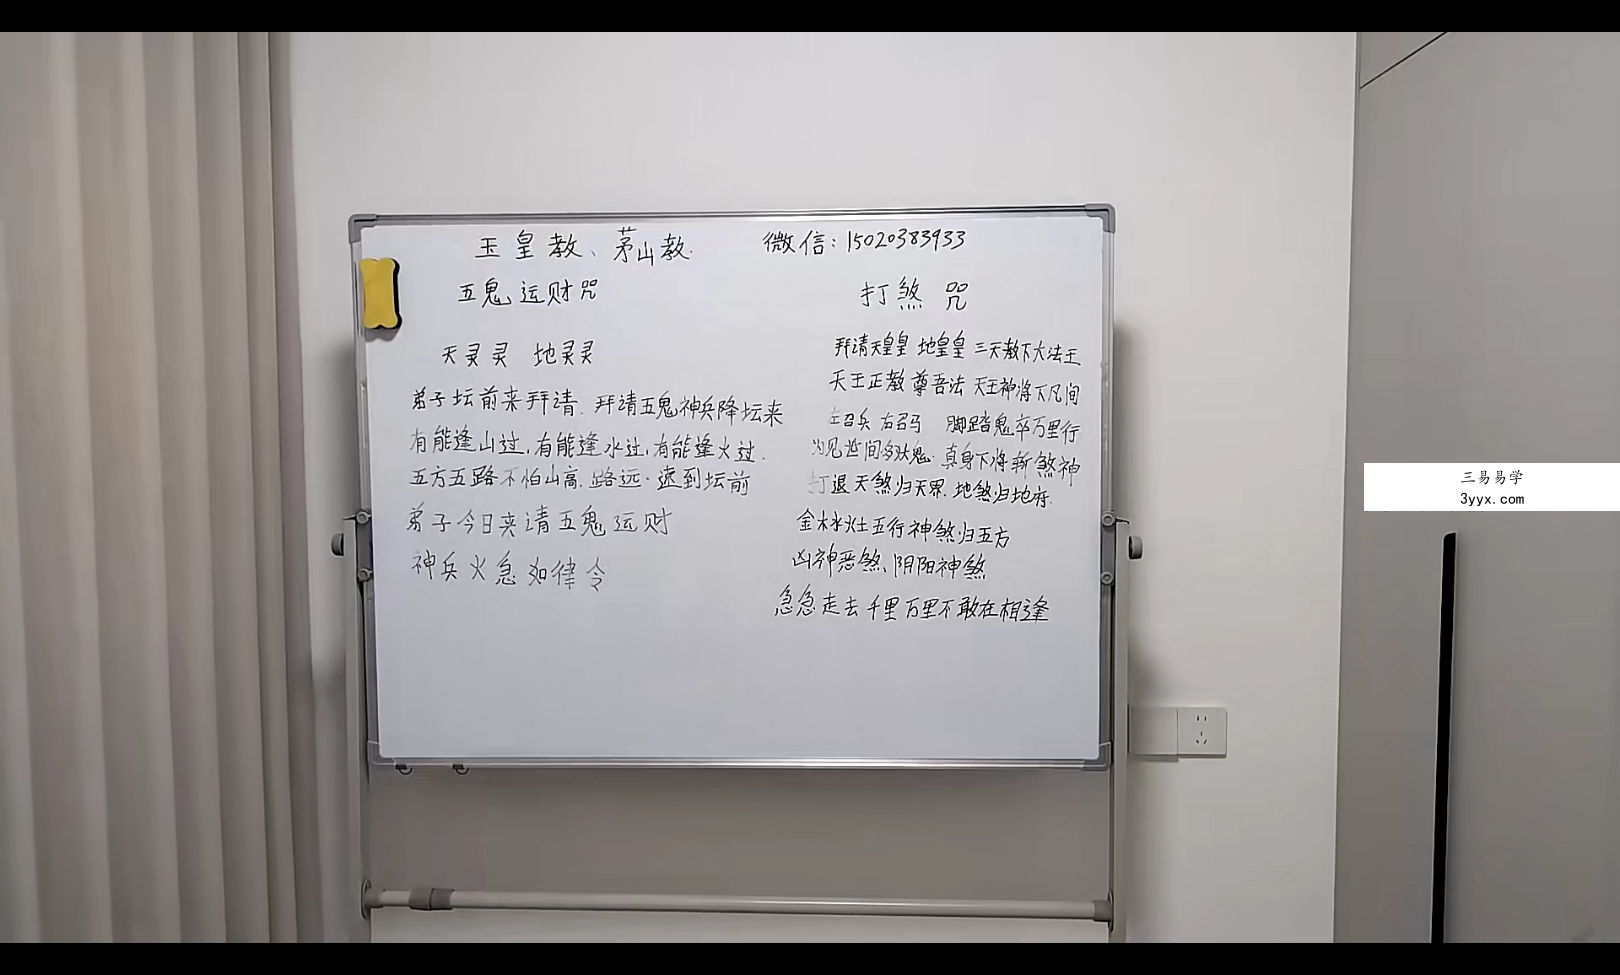 玉皇教、茅山教.
微信：15020383933
五鬼运财咒
天灵灵 地灵灵
弟子坛前来拜请.拜请五鬼神兵降坛来
有能逢山过,有能逢水过,有能逢火过.
五方五路不怕山高.路远.速到坛前
弟子今日来请五鬼运财
神兵火急如律令
打煞咒
拜请天皇皇 地皇皇 三天教下大法王
天王正教尊吾法 天王神将下凡间
左召兵 右召马 脚踏鬼卒万里行
为见世间多伏鬼.真身下将斩煞神
打退天煞归天界.地煞归地府.
金木水火土五行神煞归五方
凶神恶煞、阴阳神煞
急急走去千里万里不敢在相逢
三易易学
3yyx.com